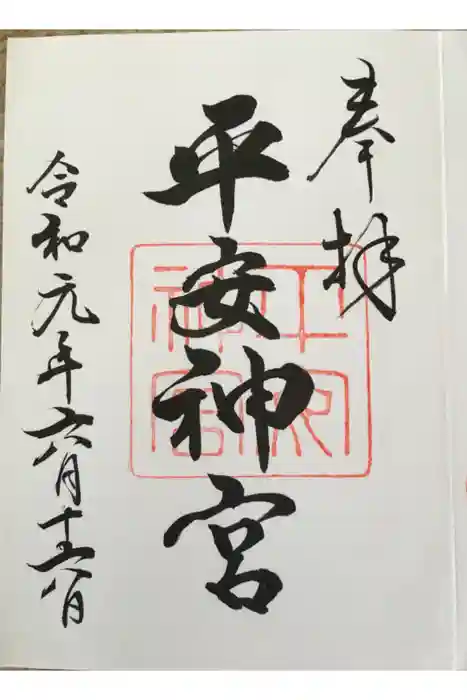 奉拝
平安神宮
令和元年六月十六日
平安神宮